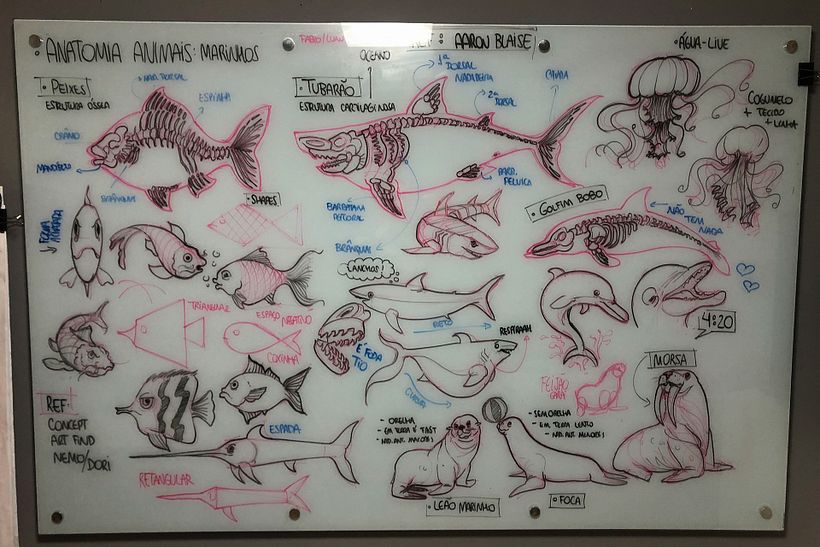 ANATOMIA ANIMAIS: MARINHOS
FABIO/LUAN
OCEANO
REF: AARON BLAISE
ÁGUA-LIVE
PEIXES
ESTRUTURA ÓSSEA
NAD. DORSAL
ESPINHA
CRÂNIO
MANDÍBULA
BRÂNQUIAS
TUBARÃO
ESTRUTURA CARTILAGINOSA
1ª DORSAL
NADADEIRA
2ª DORSAL
CAUDA
BARB. PELVICA
BARBATANA
PEITORAL
BRÂNQUIAS
COGUMELO
+ TECIDO
+ LINHA
GOLFINHO BOBO
NÃO TEM
NADA
SHAPES
TRIANGULAR
ESPAÇO NEGATIVO
COXINHA
LANCHOS!
RETO
RESPIRAAH
É FODA
TIO
CURVA
4:20
FEIJÃO
CARA
MORSA
REF:
CONCEPT
ART FIND
NEMO/DORI
ESPADA
RETANGULAR
- ORELHA
- EM TERRA É FAST
- NAD. ANT. MAIORES
- SEM ORELHA
- EM TERRA LENTO
- NAD. ANT. MENORES
LEÃO MARINHO
FOCA